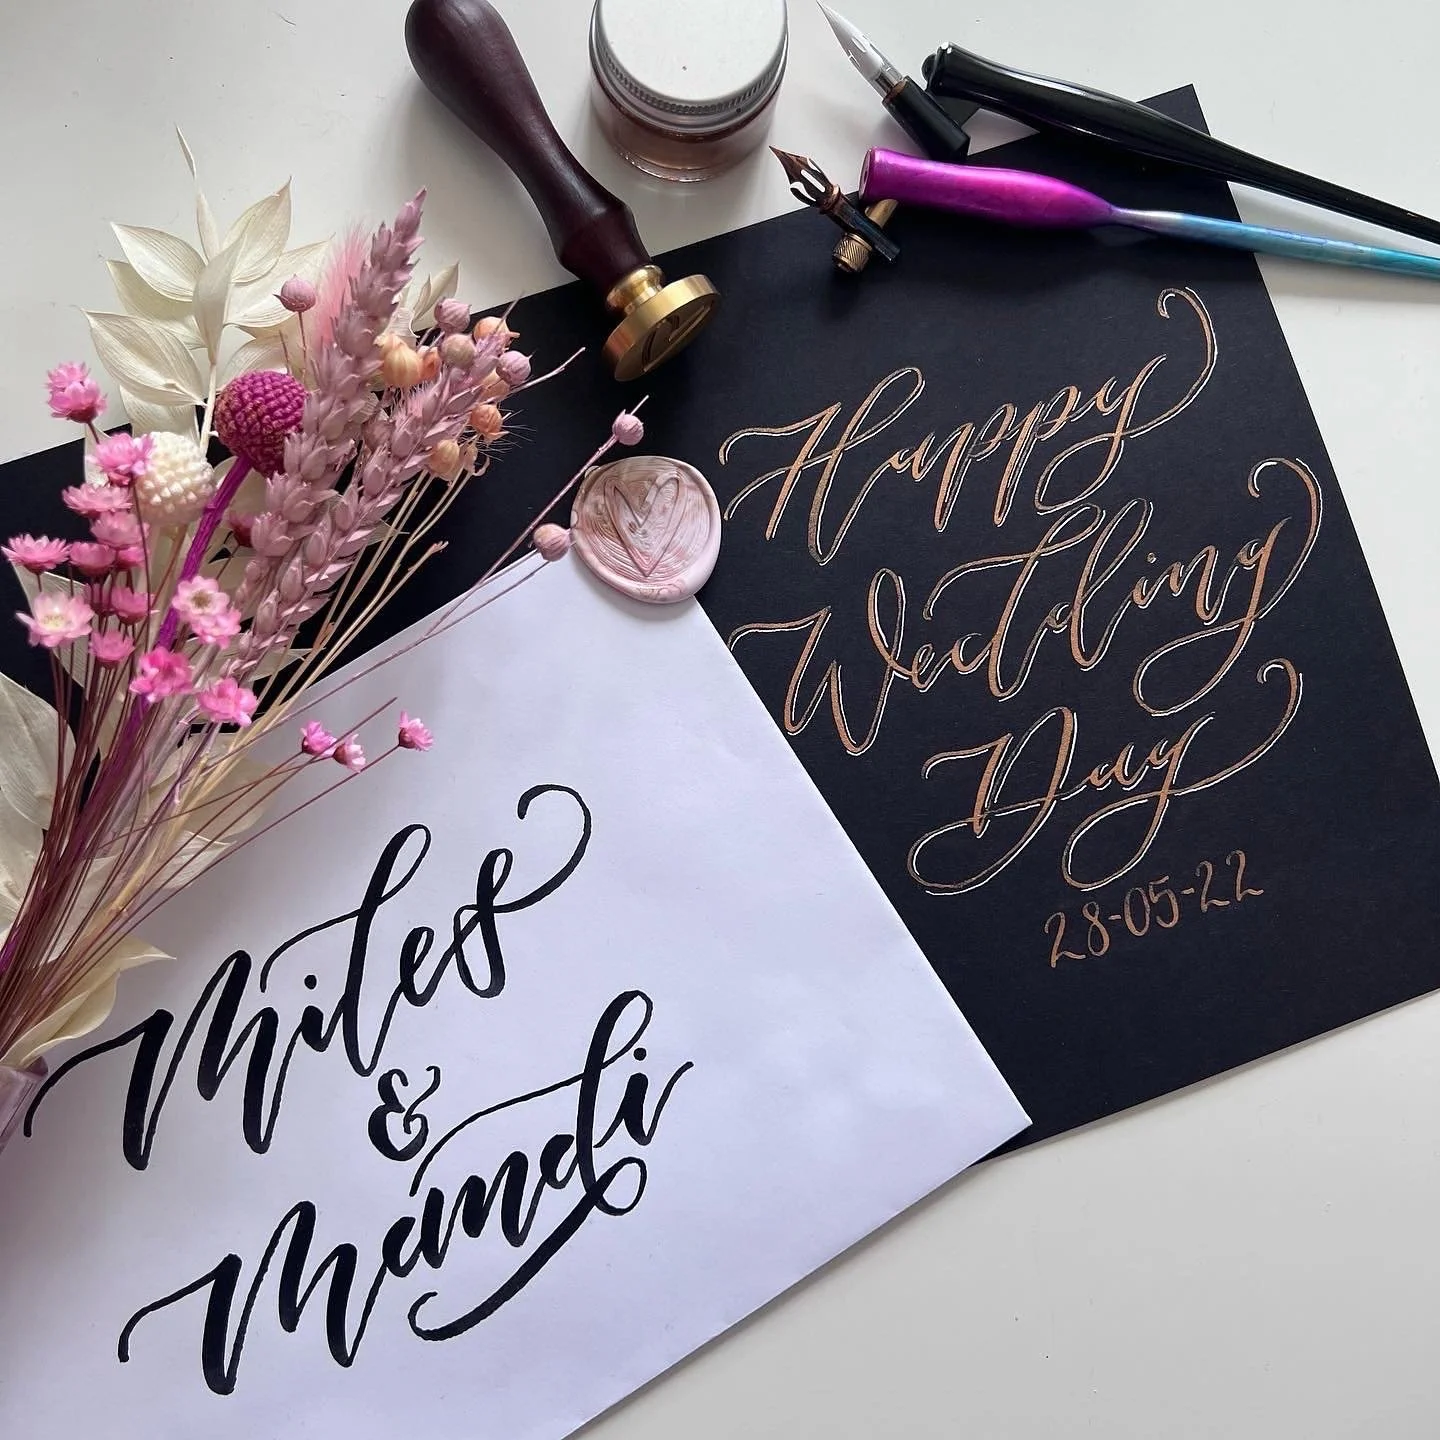 Happy
Wedding
Day
28-05-22
Miles
&
Mandi